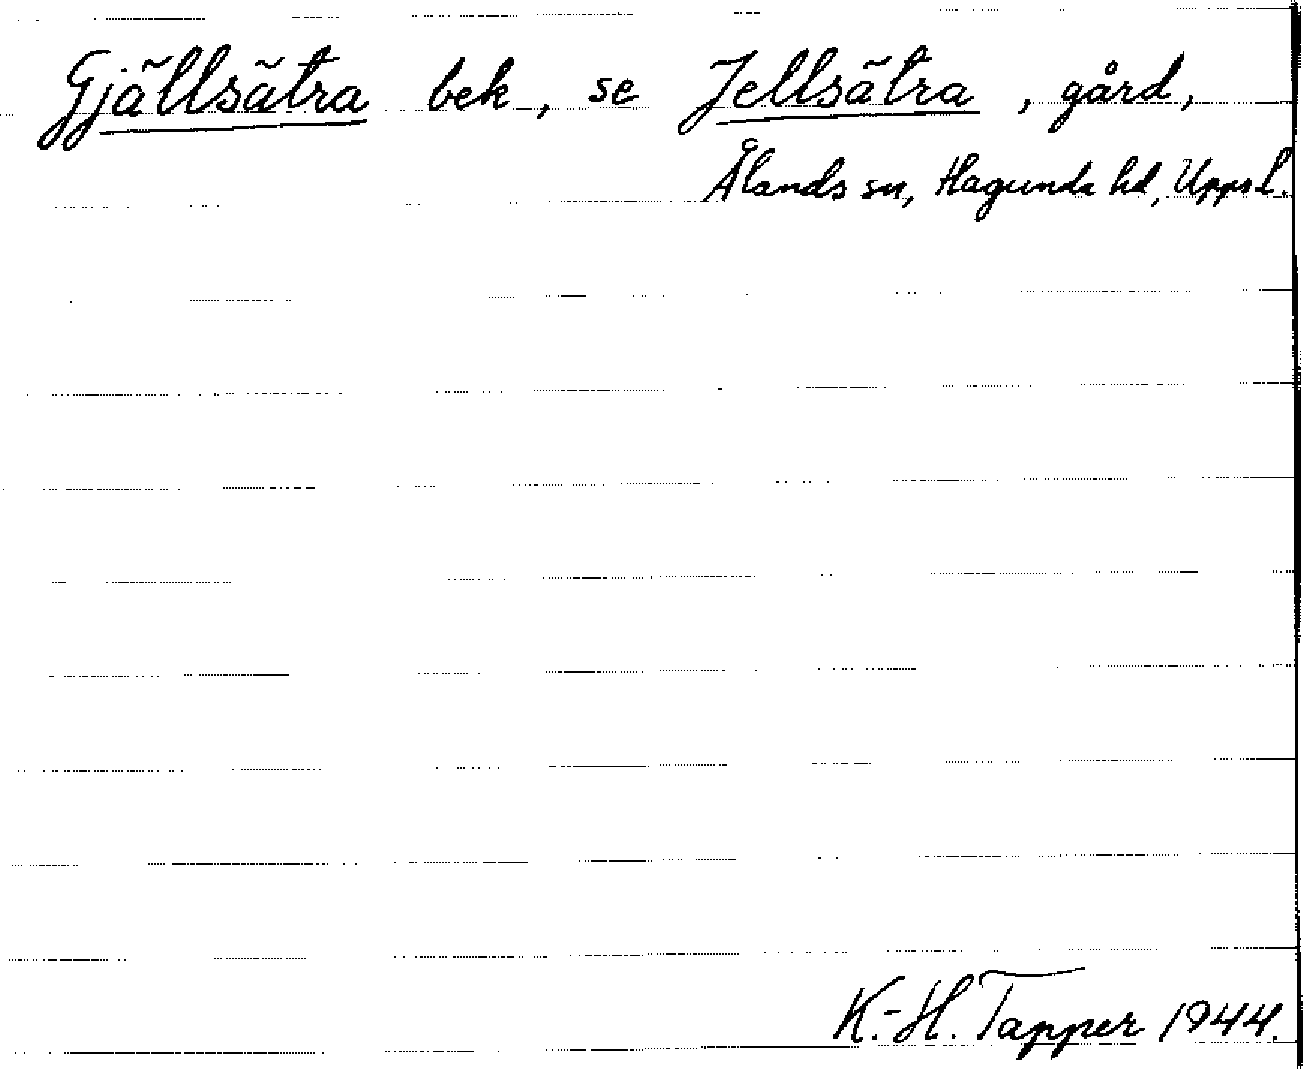 Gjällsätra bek, se Jellsätra, gård,
Ålands sn, Hagunda hd, Uppsl.
K.-H. Tapper 1944.